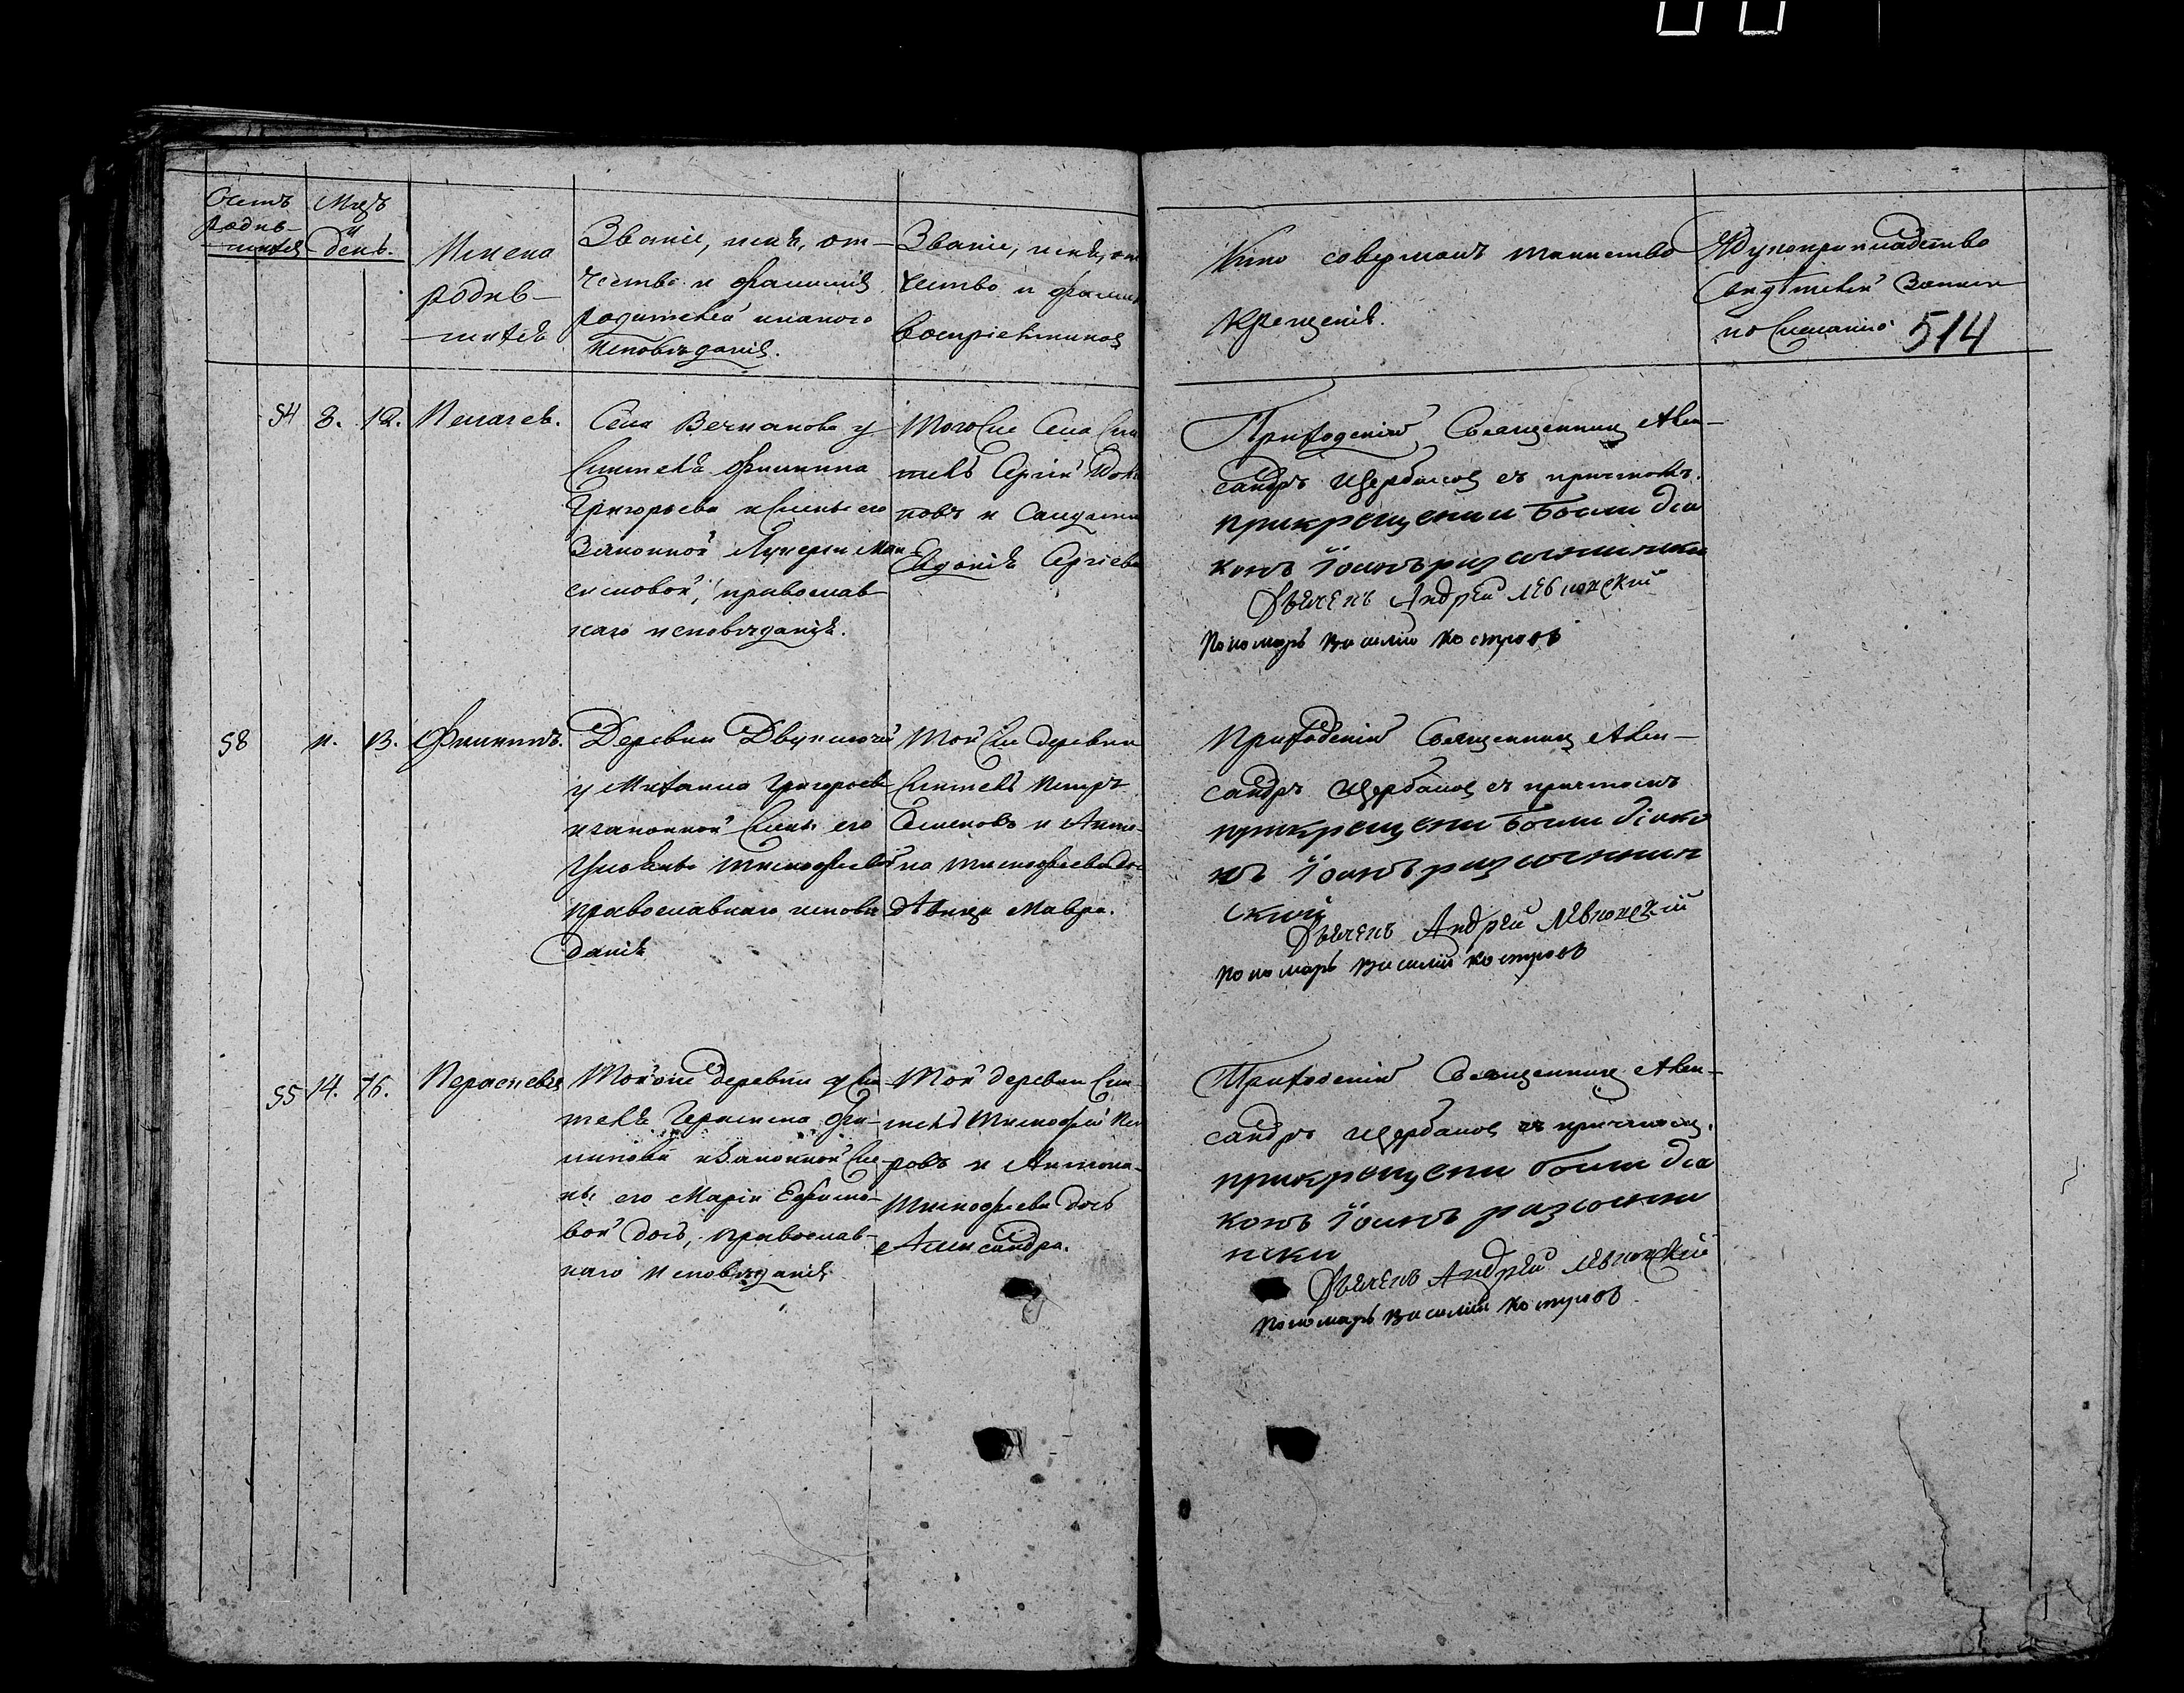 Счетъ родив-
шихся
Мцъ
и
день.
Имена
родив-
шихся
Званіе, имя, от-
чество и фамилія
родителей и какого
исповѣданія.
Званіе, имя, от
чество и фамил
воспріемников
Кто совершалъ таинство
крещенія.
Рукоприкладство
свидѣтелей записи
по желанію
514
54
8.
12.
Пелагея.
Села у
жителя Филиппа
Григорьева и жены его
законной Лукерьи Мак-
симовой, православ-
наго исповѣданія.
Того же села жи
тель Сергій
повъ и солдатка
Евдокія Сергіева
Приходскій Священникъ Алек-
сандръ Щербаковъ съ причтомъ.
при крещении были диа
конъ Іоаннъ
Дьячекъ Андрей
Пономарь Василій Костровъ
58
11.
13.
Филиппъ.
Деревни Двуключей
у Михаила Григорьева
и законной жены его
Ульяны Тимофеевой
православнаго исповѣ
данія
Той же деревни
житель Петръ
Семеновъ и
на Тимофеева дочь
дѣвица Мавра.
Приходскій Священникъ Алек-
сандръ Щербаковъ съ причтомъ
при крещени были діако
нъ Іоаннъ
ский
Дьячекъ Андрей
Пономарь Василій Костровъ
55
14.
16.
Параскевія
Той же деревни у жи
теля Герасима Фи-
липова и законной же
ны его Маріи Ефимо-
вой дочь, православ-
наго исповѣданія
Той деревни жи-
тель Тимофей Пет
ровъ и Антона
Тимофеева дочь
Александра.
Приходскій Священникъ Алек-
сандръ Щербаковъ съ причтомъ.
при крещени были диа
конъ Іоаннъ
Дьячекъ Андрей
Пономарь Василій Костровъ